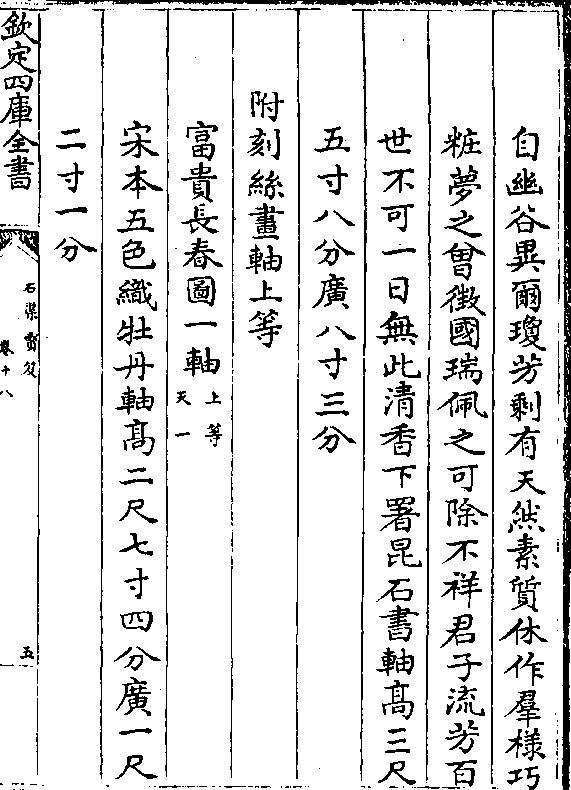 自幽谷異爾瓊芳剩有天然素質休作羣様巧
粧夢之曾徴國瑞佩之可除不祥君子流芳百
世不可一日無此清香下署昆石書軸髙三尺
五寸八分廣八寸三分
附刻絲畫軸上等
富貴長春圖一軸上等天一
宋本五色織牡丹軸髙二尺七寸四分廣一尺
二寸一分
欽定四庫全書
石渠寳笈
卷十八
五